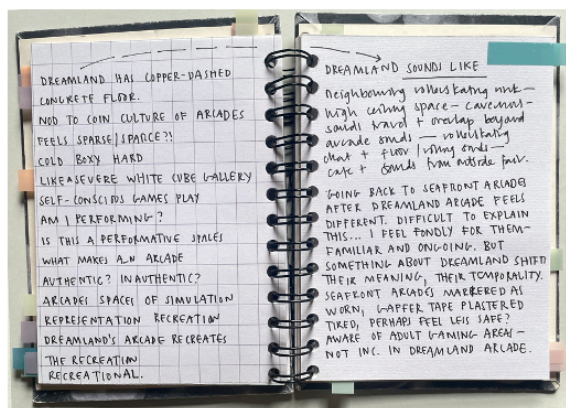 DREAMLAND HAS COPPER-DASHED
CONCRETE FLOOR.
NOD TO COIN CULTURE OF ARCADES
FEELS SPARSE/SPARCE?!
COLD BOXY HARD
LIKE A SEVERE WHITE CUBE GALLERY
SELF-CONSCIOUS GAMES PLAY
AM I PERFORMING?
IS THIS A PERFORMATIVE SPACES
WHAT MAKES AN ARCADE
AUTHENTIC? INAUTHENTIC?
ARCADES SPACES OF SIMULATION
REPRESENTATION RECREATION
DREAMLAND'S ARCADE RECREATES
THE RECREATION
RECREATIONAL.
DREAMLAND SOUNDS LIKE
Neighbouring rollerskating rink –
high ceiling space – cavernous –
sounds travel + overlap beyond
arcade sounds — rollerskating
chat + floor / rolling sounds –
cafe + sounds from outside fair.
GOING BACK TO SEAFRONT ARCADES
AFTER DREAMLAND ARCADE FEELS
DIFFERENT. DIFFICULT TO EXPLAIN
THIS... I FEEL FONDLY FOR THEM–
FAMILIAR AND ONGOING. BUT
SOMETHING ABOUT DREAMLAND SHIFTS
THEIR MEANING, THEIR TEMPORALITY.
SEAFRONT ARCADES MARKERED AS
WORN, GAFFER TAPE PLASTERED
TIRED, PERHAPS FEEL LESS SAFE?
AWARE OF ADULT GAMING AREAS–
NOT INC. IN DREAMLAND ARCADE.